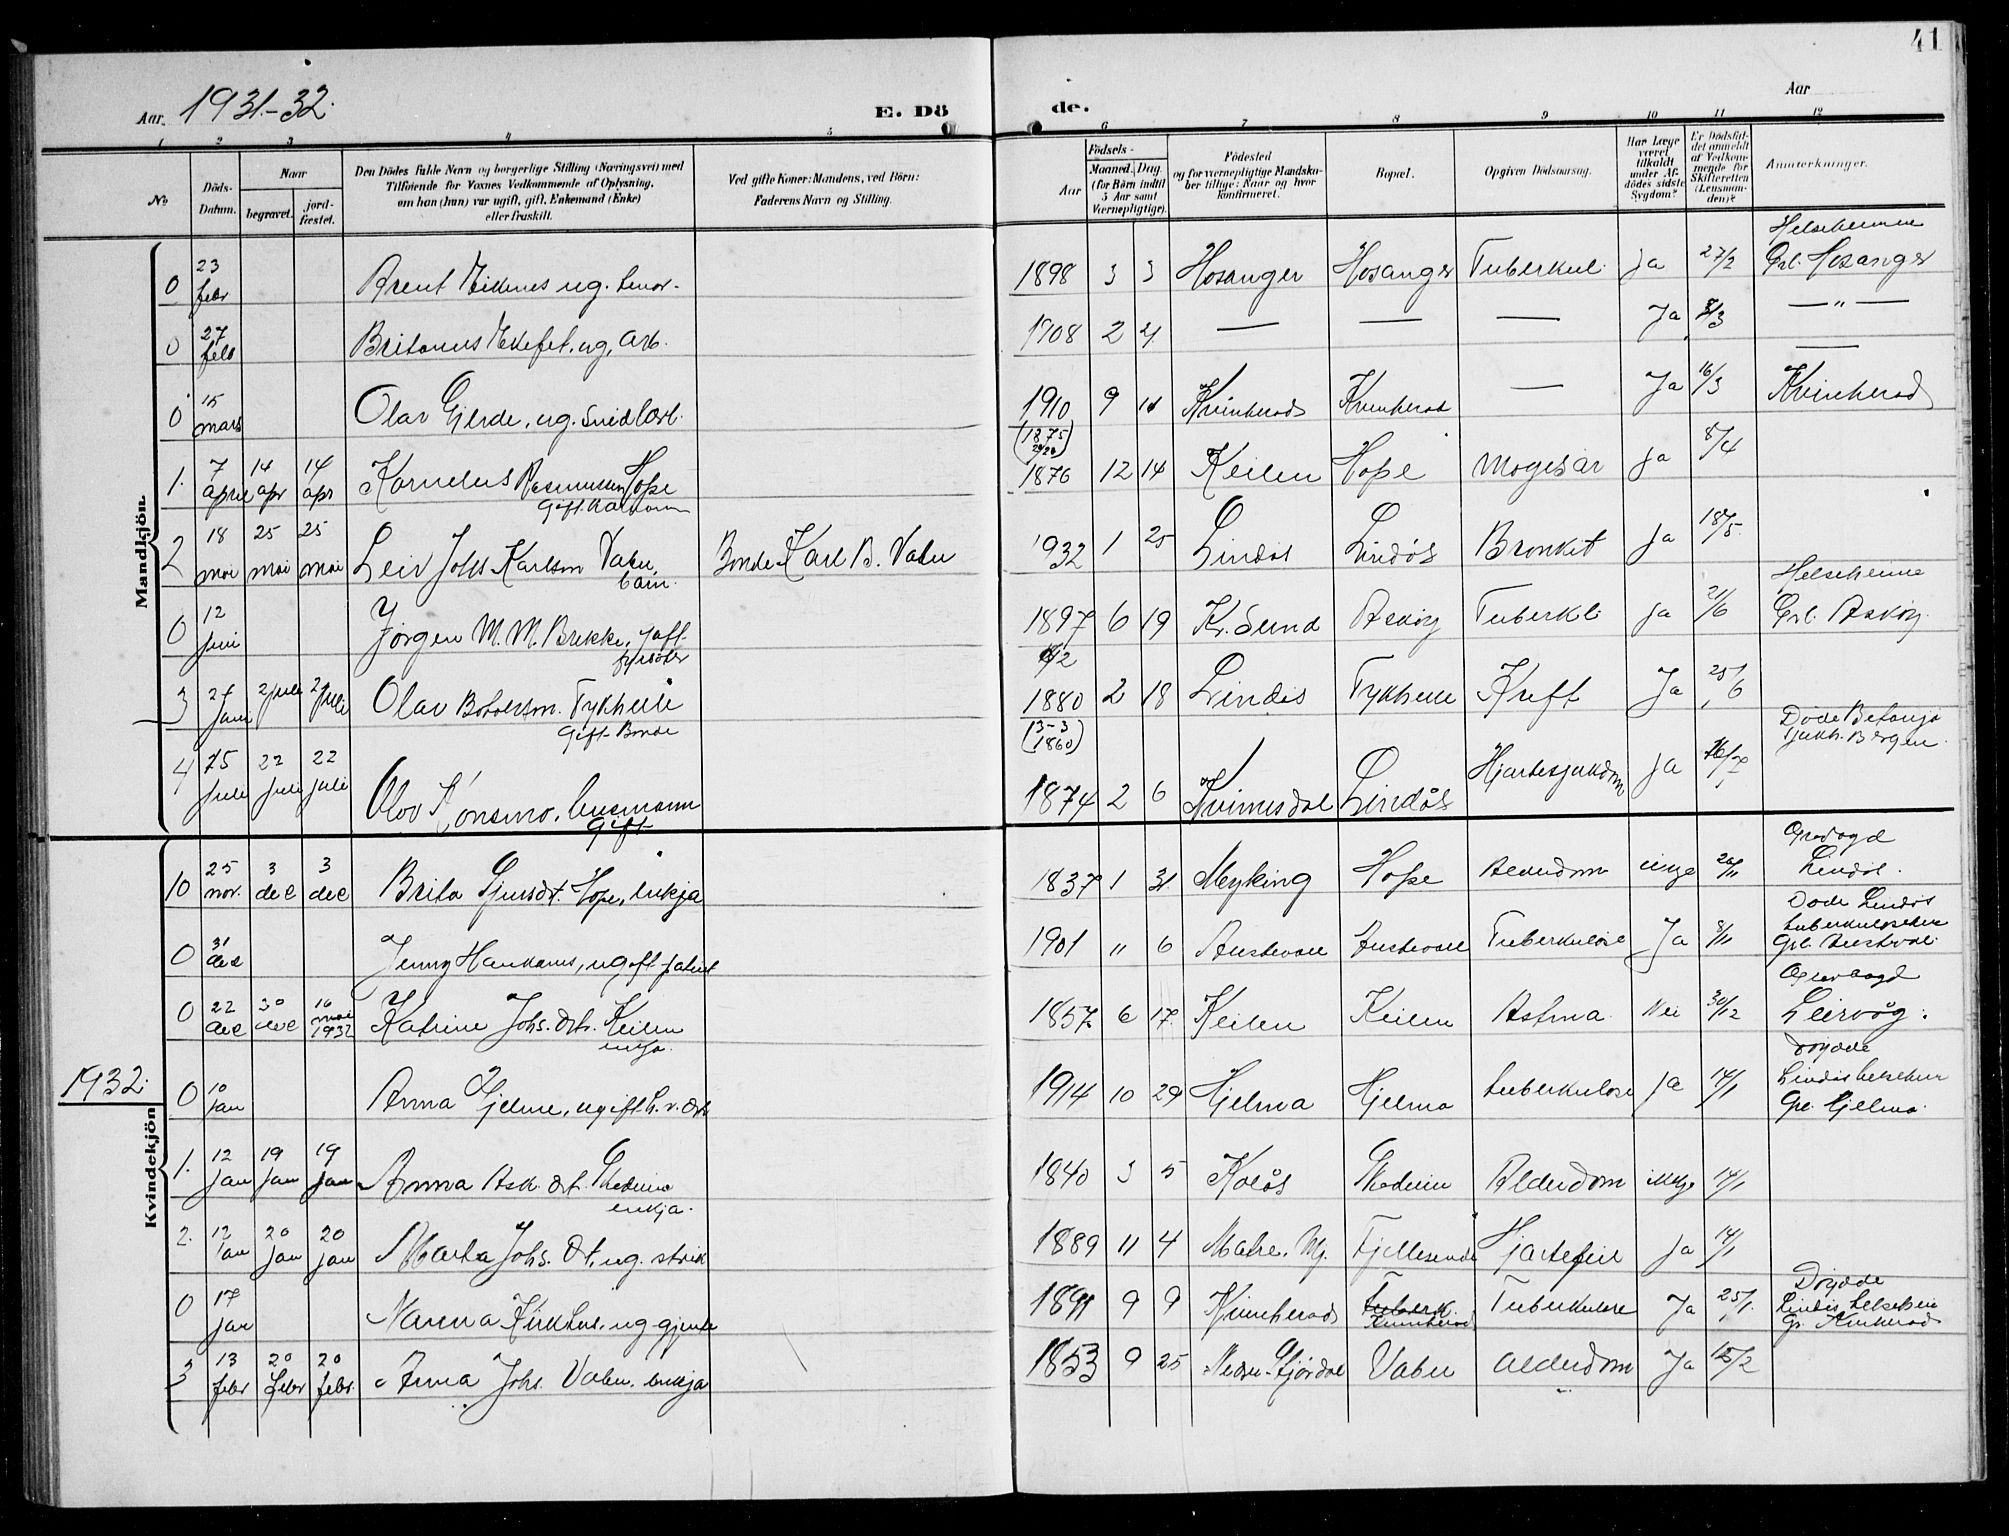 41
Aar 1931-32.
E. Dö
de.
Aar
1 2 3 4 5 6 7 8 9 10 11 12
No
Döds-Datum.
Naar
begravet.
jordfæstet.
Den Dödes fulde Navn og borgerlige Stilling (Næringsvei) med
Tilföiende for Voxnes Vedkommende af Oplysning,
om han (hun) var ugift, gift, Enkemand (Enke)
eller fraskilt.
Ved gifte Koner: Mandens, ved Börn:
Faderens Navn og Stilling.
Födsels-
Aar
Maaned. Dag.
(for Börn indtil
5 Aar samt
Værnepligtige).
Födested
og for værnepligtige Mandskaber tillige: Naar og hvor
konfirmeret.
Bopæl.
Opgiven Dödsaarsag.
Har Læge
været
tilkaldt
under Afdödes sidste
Sygdom?
Er Dödsfaldet anmeldt
af Vedkommende for
Skifteretten
(Lensmanden)?
Anmærkninger.
Mandkjön.
0 23 febr Arent 1898 3 3 Hosanger Hosanger Tuberkul. Ja 27/2 Helseheimen Grl. Hosanger
0 27 feb ug. arb. 1908 2 21 — — — Ja 8/3 — " —
0 15 mars Olav Gjerde, ug. 1910 9 Kvinherad Kvinherad — Ja 16/3 Kvinherad
(1875)
1. 7 april 14 apr 14 apr Kornelius Rasmussen Hope 1876 12 14 Keilen Hope Magesår Ja 8/4
gift
2 18 mai 25 mai 25 mai Leiv Johs Karlson Vabu, barn. Bonde Karl B. Vabu 1932 1 25 Lindås Lindås Bronkit Ja 18/5.
0 12 juni Jörgen M. M. Brekke, 1897 6 19 Kr. Sund Asköy Tuberkl. Ja 21/6 Helseheime Grl. Asköy.
3 juni 2 juli 2 juli Olav Tykkhelle 1880 2 18 Lindås Tykkhelle Kreft Ja 25/6
Gift Bonde
(13-3 1860)
4 15 juli 22 juli 22 juli Olav Konsmo, 1874 2 6 Kvinesdal Lindås Hjartesjukdom Ja 16/7 Döde Betanja sjukh. Bergen.
Gift
Kvindekjön
10 25 nov. 3 des 3 des Brita Hope, enkja 1837 1 31 Myking Hope Alderdom ikkje Gravlagd Lindås.
0 31 Jenny ugift 1901 11 6 Austevoll Austevoll Tuberkulose Ja 8/11 Döde Lindås tuberkuloseheim Grl. Austevoll.
0 22 des 30 des 16 mai 1932 Katrine Johs. dtr. Keilen enkja. 1857 6 17. Keilen Keilen Astma. Nei 30/12 Gravlagd Leirvåg.
1932.
0 10 jan Anna Hjelme, ugift 1914 10 29 Hjelma Hjelma tuberkulose ja 14/1 Döydde Lindås helseheim Grl. Hjelma.
1. 12 jan 19 jan 19 jan Anna Ask. dt. enkja. 1840 3 5 Kolås Alderdom ikkje 14/1
2. 12 jan 20 jan 20 jan Marta Johs. dt., ug. 1889 11 4 Matre, Mj. Fjellesende Hjartefeil ja 14/1
0 17 jan Nanna ug. gjente 1891 9 9 Kvinherad Tuberk. Kvinherad Tuberkulose Ja 25/1. Döydde Lindås helseheim Gr. Kvinherad
3 13 febr 20 febr 20 febr. Anna Johs. Vabu, enkja 1853 9 25 Vabu Alderdom Ja 15/2